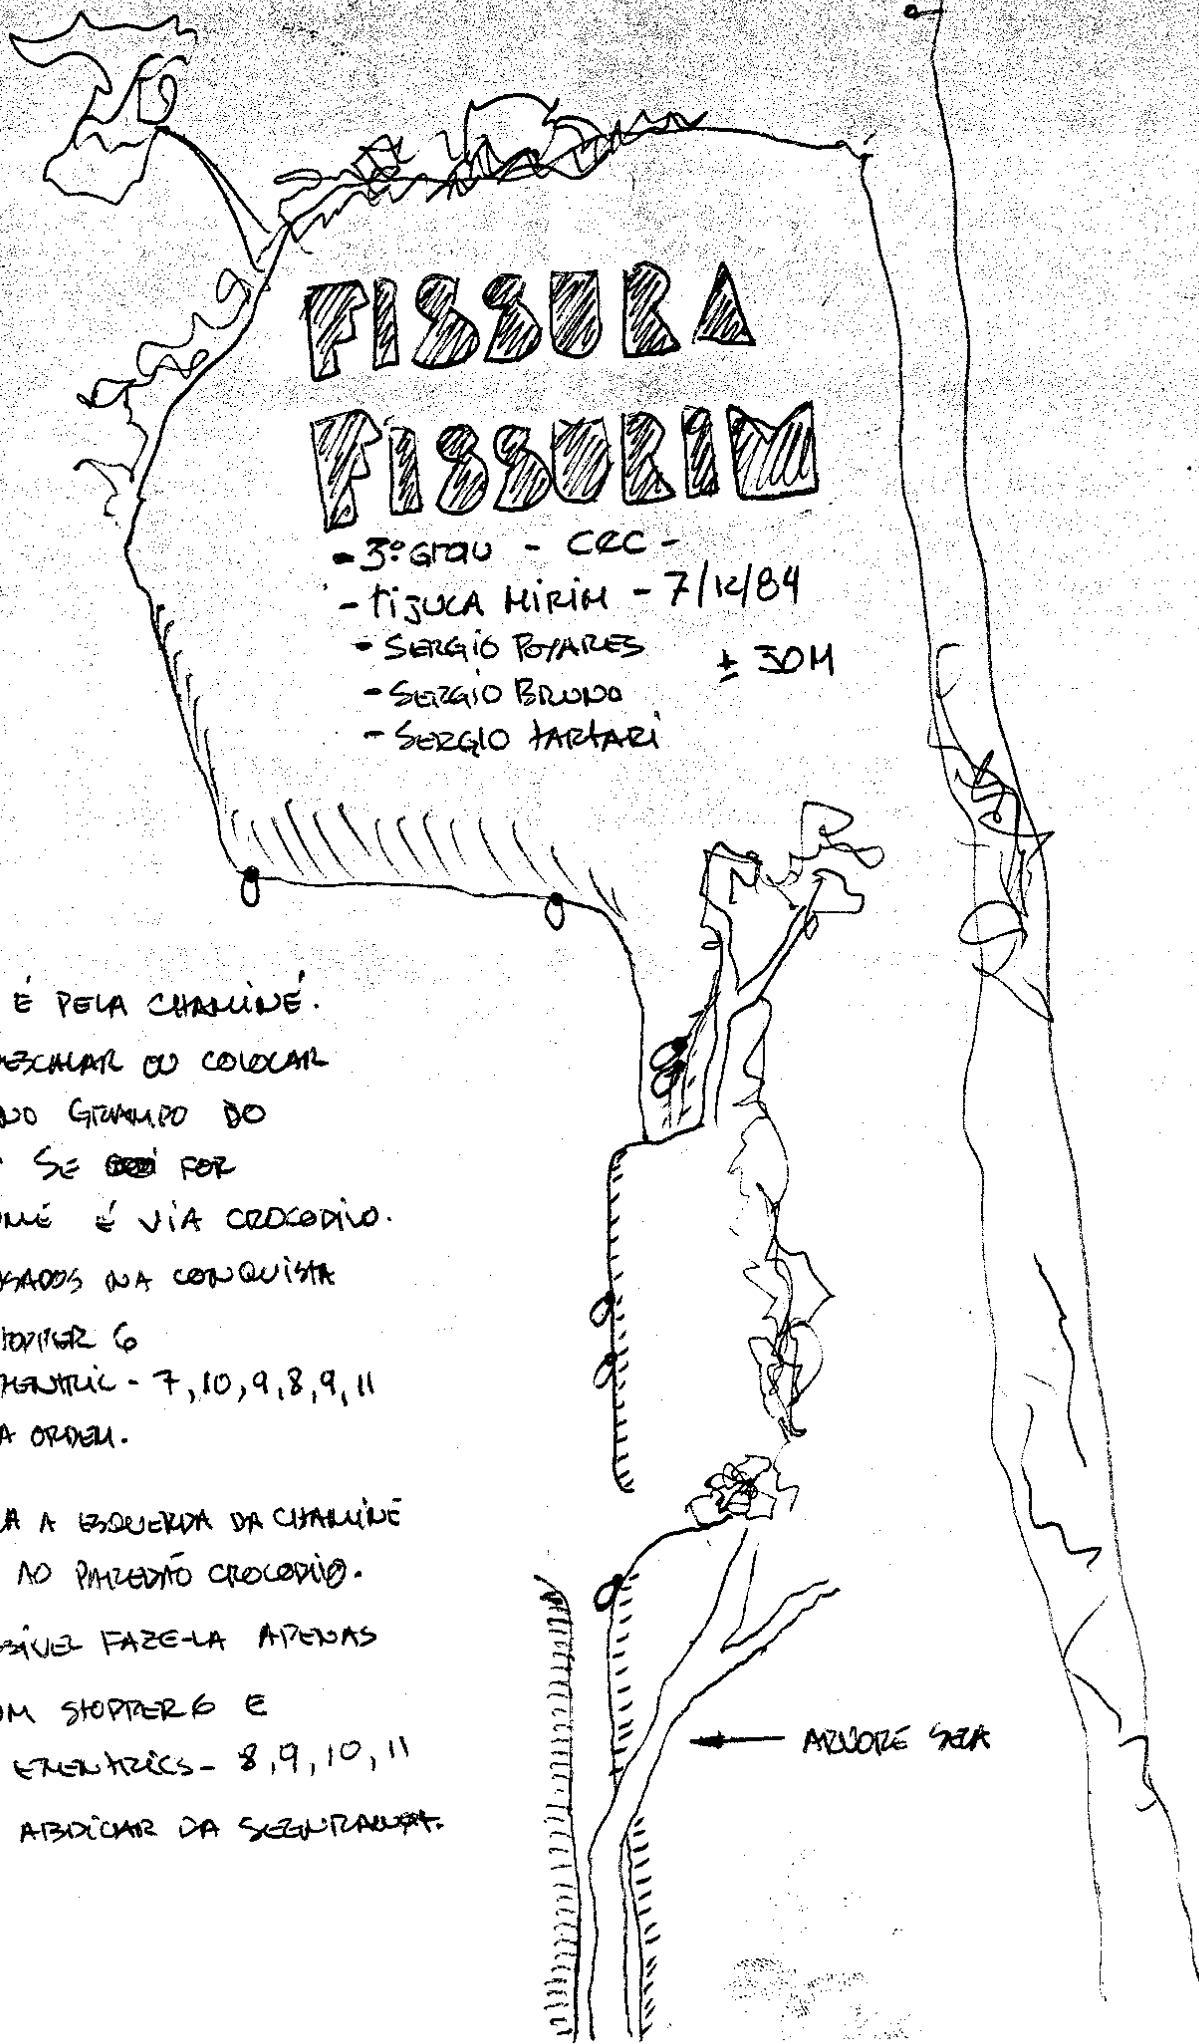 FISSURA
FISSURIM
- 3º GRAU - CRC -
- TIJUCA MIRIM - 7/12/84
- SERGIO POYARES
± 30M
- SERGIO BRUNO
- SERGIO TARTARI
É PELA CHAMINÉ.
ESCALAR OU COLOCAR
NO GRAMPO DO
SE FOR
É VIA CROCODILO.
USADOS NA CONQUISTA
STOPPER 6
- 7, 10, 9, 8, 9, 11
A ORDEM.
A ESQUERDA DA CHAMINÉ
AO PAREDÃO CROCODILO.
FAZE-LA APENAS
STOPPER 6 E
- 8, 9, 10, 11
ABDICAR DA SEGURANÇA.
ARVORE SECA